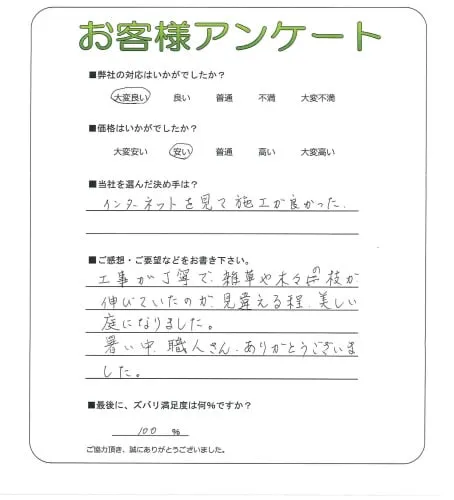 お客様アンケート
■弊社の対応はいかがでしたか？
大変良い 良い 普通 不満 大変不満
■価格はいかがでしたか？
大変安い 安い 普通 高い 大変高い
■当社を選んだ決め手は？
インターネットを見て施工が良かった.
■ご感想・ご要望などをお書き下さい。
工事が丁寧で、雑草や木々の枝が
伸びていたのが、見違える程、美しい
庭になりました。
暑い中、職人さん、ありがとうございま
した。
■最後に、ズバリ満足度は何%ですか？
100 %
ご協力頂き、誠にありがとうございました。